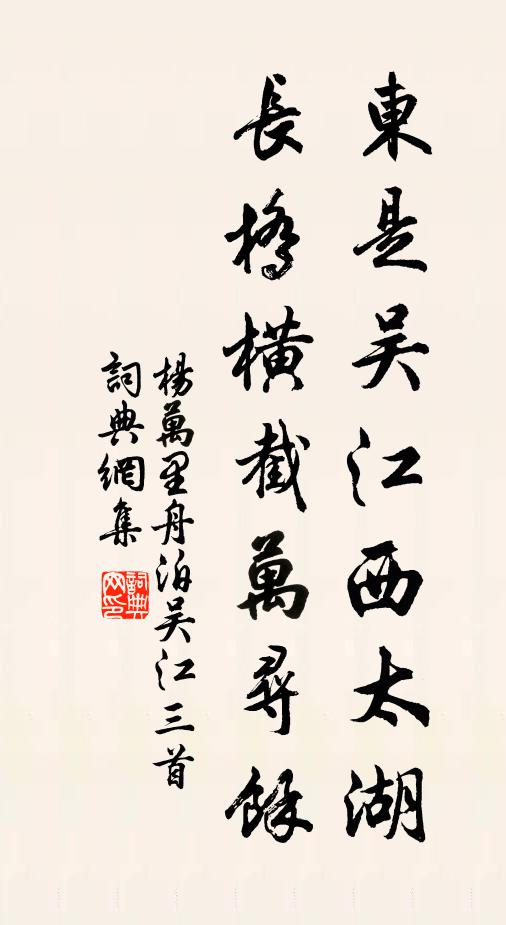 東是吴江西太湖
長橋橫截萬尋餘
楊萬里舟泊吴江三首
詞典網集
詞典网印